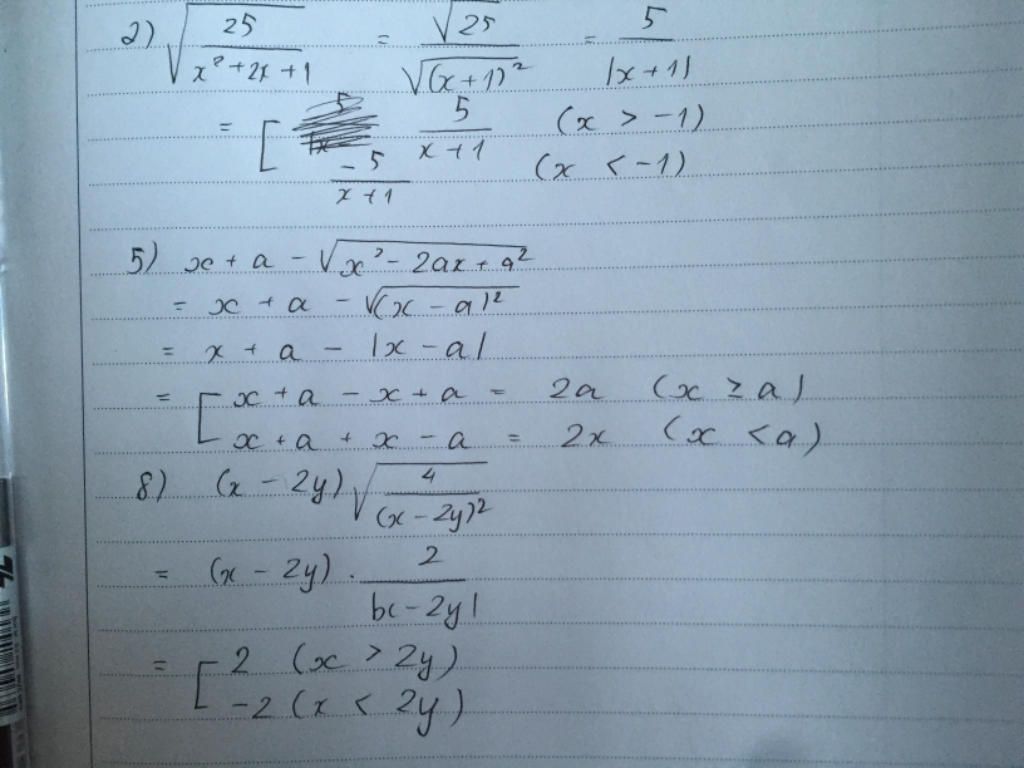 2) √(25/(x²+2x+1)) = √25/√((x+1)²) = 5/|x+1|
= [ 5/(x+1) (x > -1)
-5/(x+1) (x < -1)
5) x + a - √(x² - 2ax + a²)
= x + a - √((x - a)²)
= x + a - |x - a|
= [ x + a - x + a = 2a (x ≥ a)
x + a + x - a = 2x (x < a)
8) (x - 2y) √(4/(x - 2y)²)
= (x - 2y) . 2/|x - 2y|
= [ 2 (x > 2y)
-2 (x < 2y)